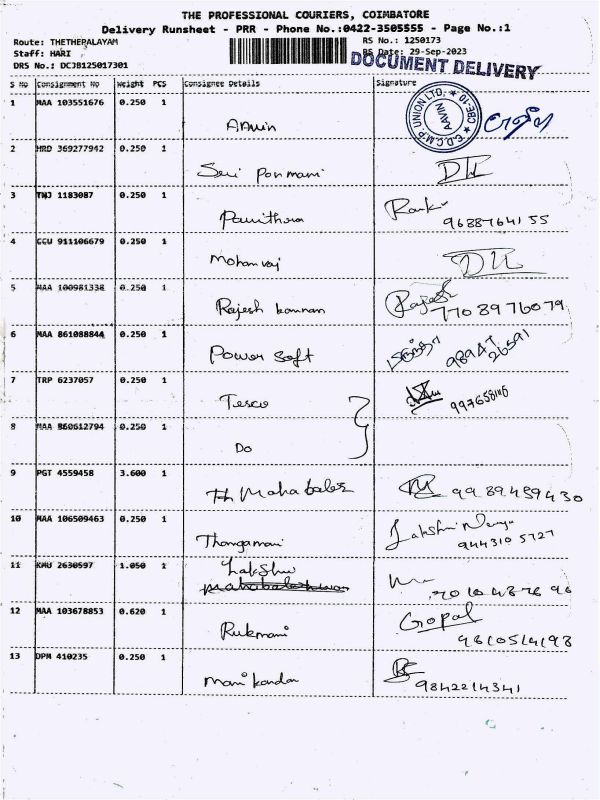 THE PROFESSIONAL COURIERS, COIMBATORE
Delivery Runsheet - PRR - Phone No.:0422-3505555 - Page No.:1
Route: THETHEPALAYAM
RS No.: 1250173
Staff: HARI
RS Date: 29-Sep-2023
DRS No.: DCJB125017301
DOCUMENT DELIVERY
S No Consignment No Weight PCS Consignee Details Signature
1 MAA 103551676 0.250 1
G.D.C.M.P. UNION LTD., CBE-10 AAVIN
2 HRD 369277942 0.250 1
3 TNJ 1183087 0.250 1
Pavithra
9688764155
4 CCU 911106679 0.250 1
Mohanraj
5 MAA 100981338 0.250 1
Rajesh kannan Rajesh
7708976079
6 MAA 861088844 0.250 1
Power Soft 98947 26591
7 TRP 6237057 0.250 1
Tesco
8 MAA 860612794 0.250 1
Do
9 PGT 4559458 3.600 1
9989459430
10 MAA 106509463 0.250 1
Thangamani Lakshmi
944310 5727
11 KMU 2630597 1.050 1
Lakshmi
12 MAA 103678853 0.620 1
Rukmani Gopal
13 DPM 410235 0.250 1
Manikandan
9842214341